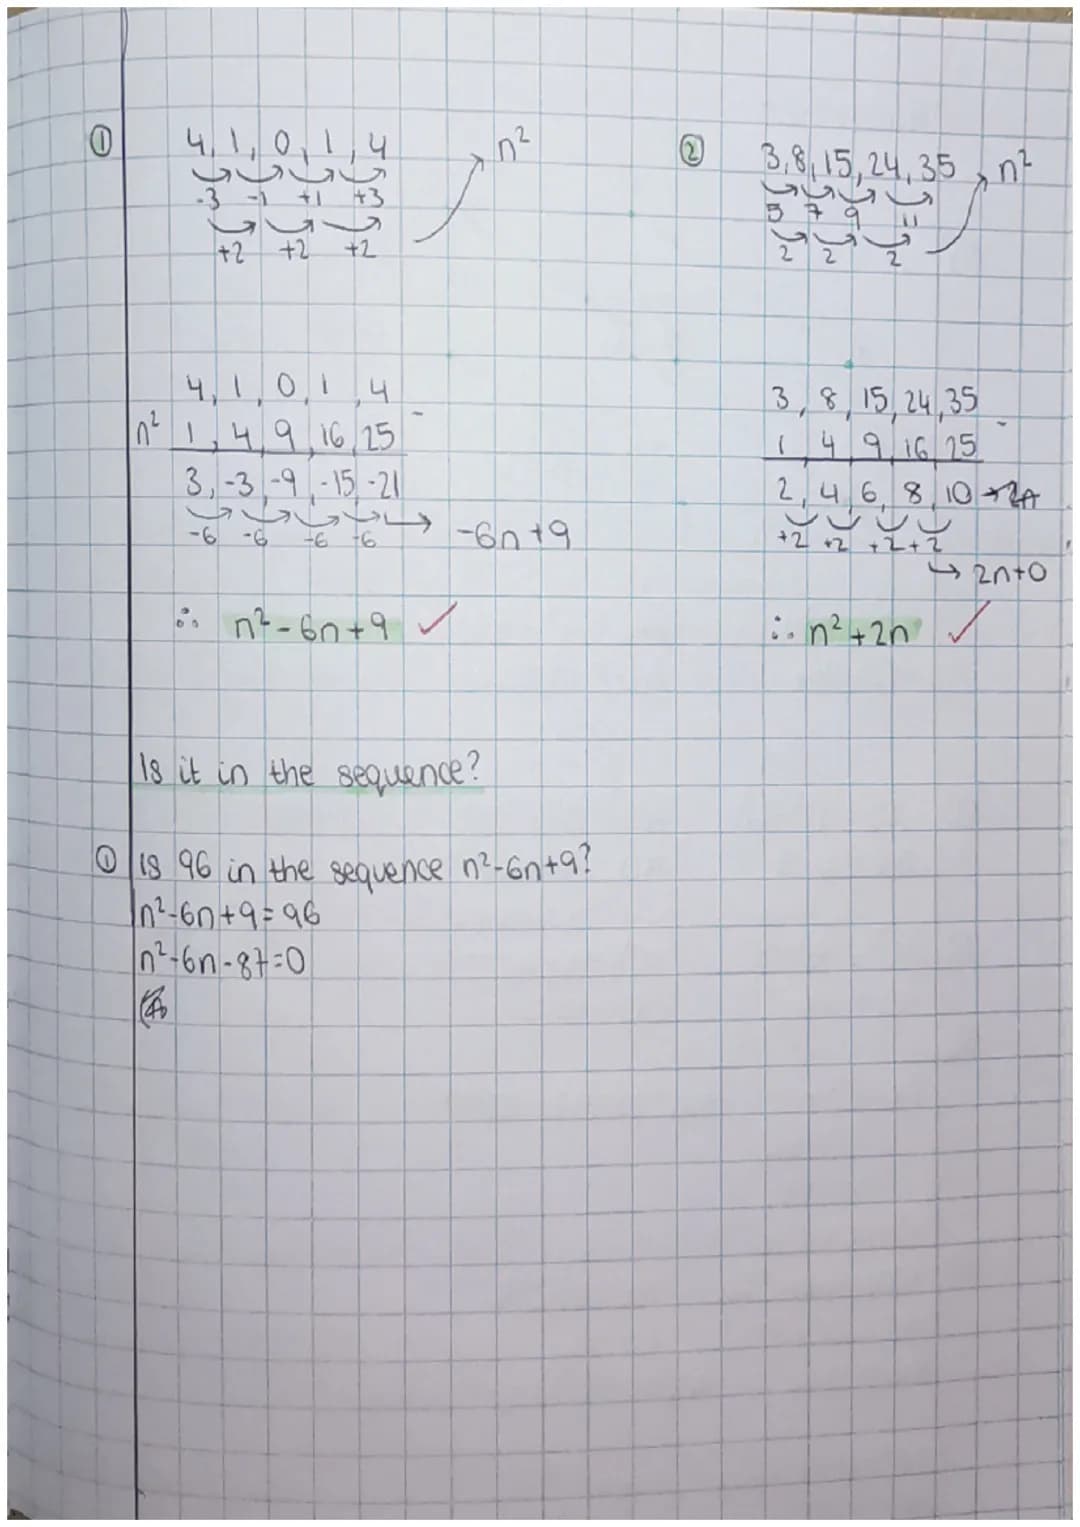 ① 4, 1, 0, 1, 4 n²
-3 -1 +1 +3
+2 +2 +2
4, 1, 0, 1, 4
n² 1, 4, 9, 16, 25 -
3, -3, -9, -15, -21
-6 -6 -6 -6 → -6n+9
∴ n²-6n+9 ✓
② 3, 8, 15, 24, 35 n²
5 7 9 11
2 2 2
3, 8, 15, 24, 35
1 4 9, 16, 25 -
2, 4, 6, 8, 10
+2 +2 +2 +2
↳ 2n+0
∴ n²+2n ✓
Is it in the sequence?
① Is 96 in the sequence n²-6n+9?
n²-6n+9=96
n²-6n-87=0